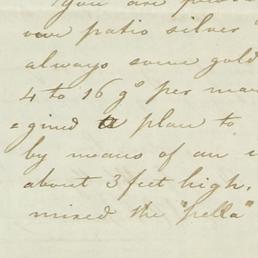 You are
patio silver
always some gold
4 to 16 gs per mar
gined a plan to
by means of an
about 3 feet high,
mixed the "pella"